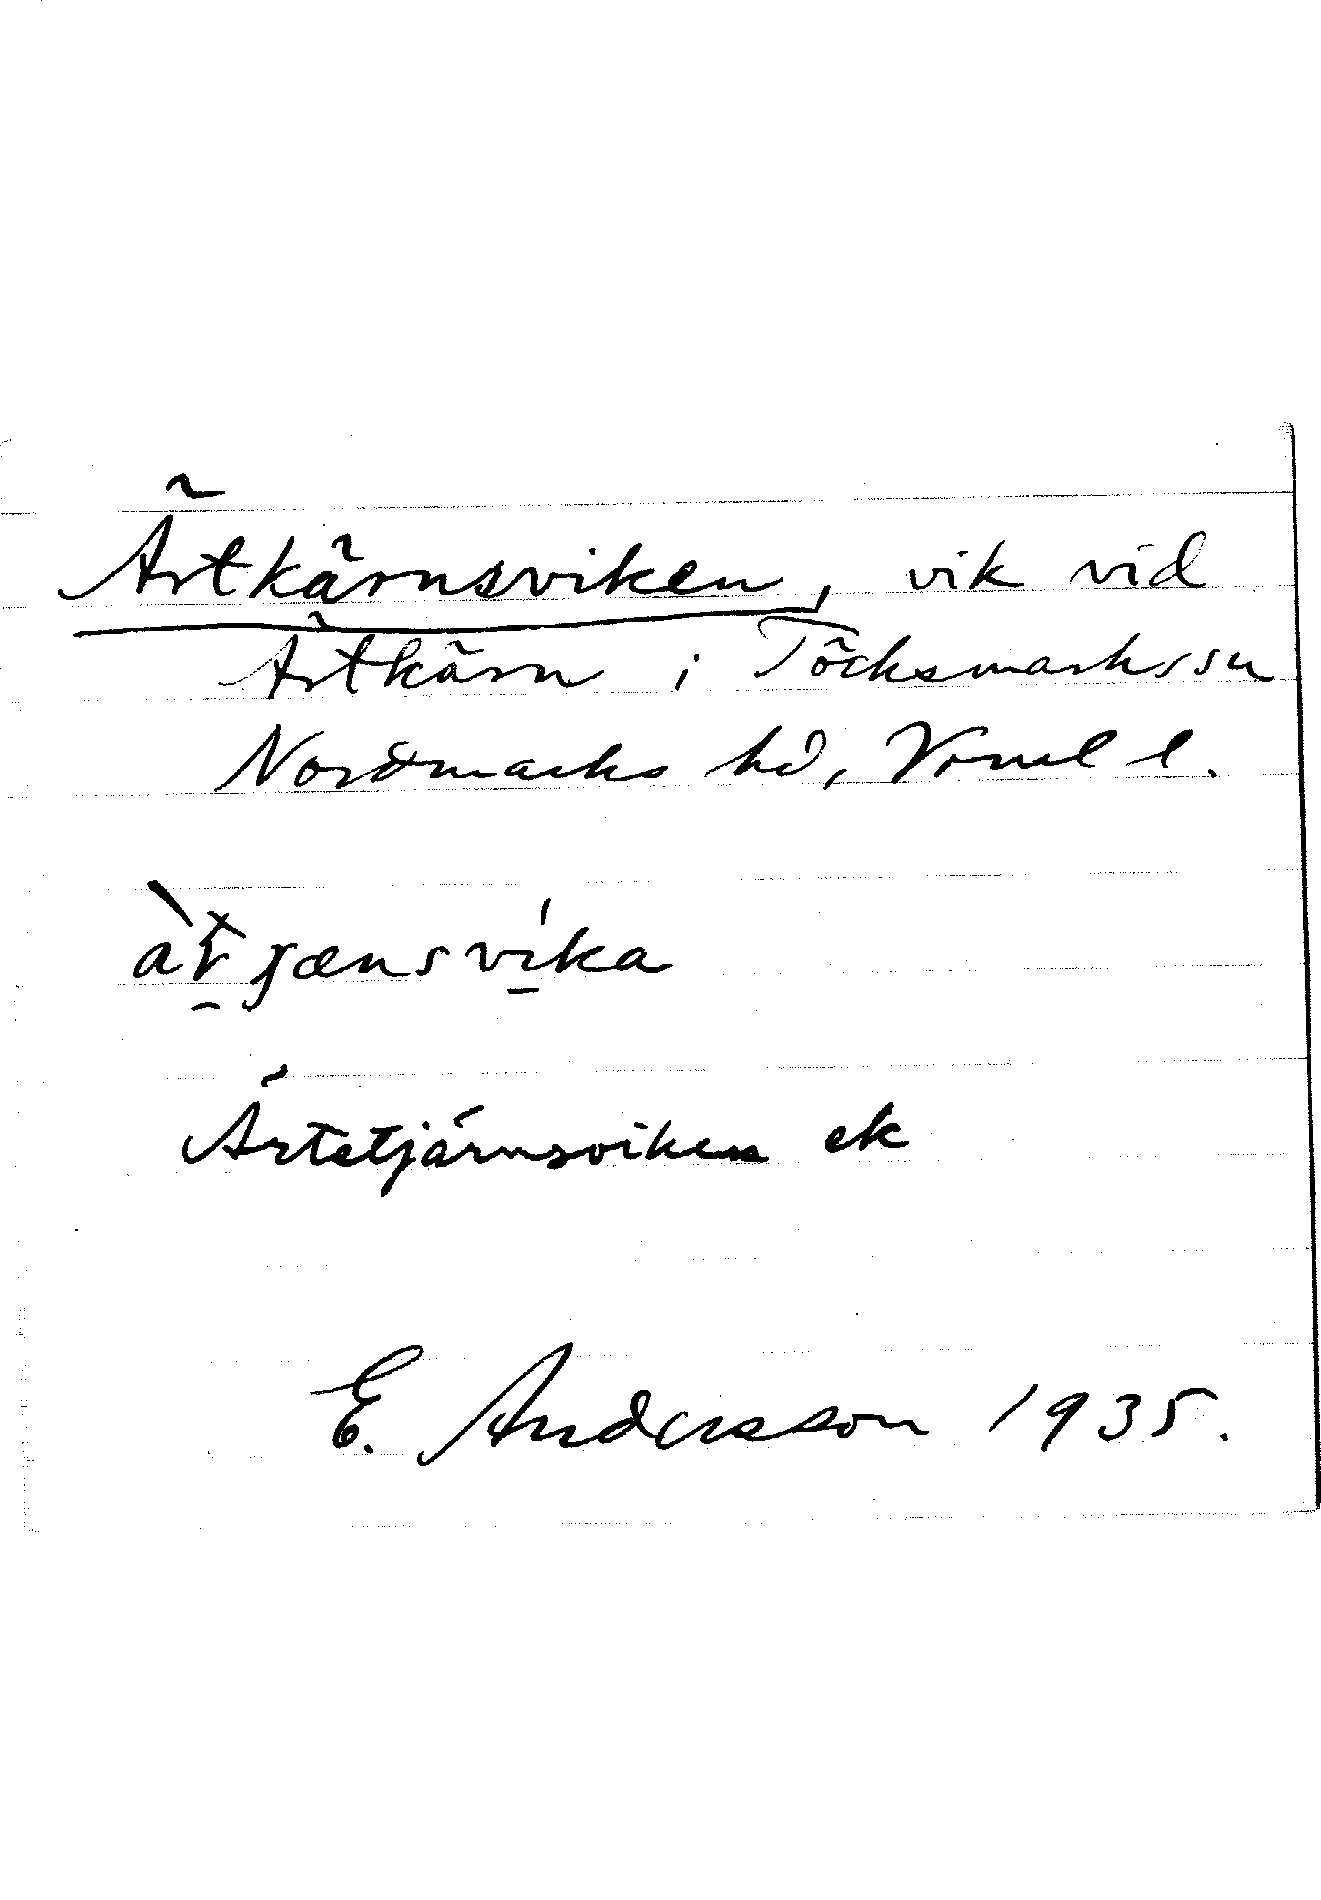 Ärtkärnsviken, vik vid
Ärtkärn i Töcksmarks sn
Nordmarks hd, Vrml l.
Ärtetjärnsviken ek
E. Andersson 1935.